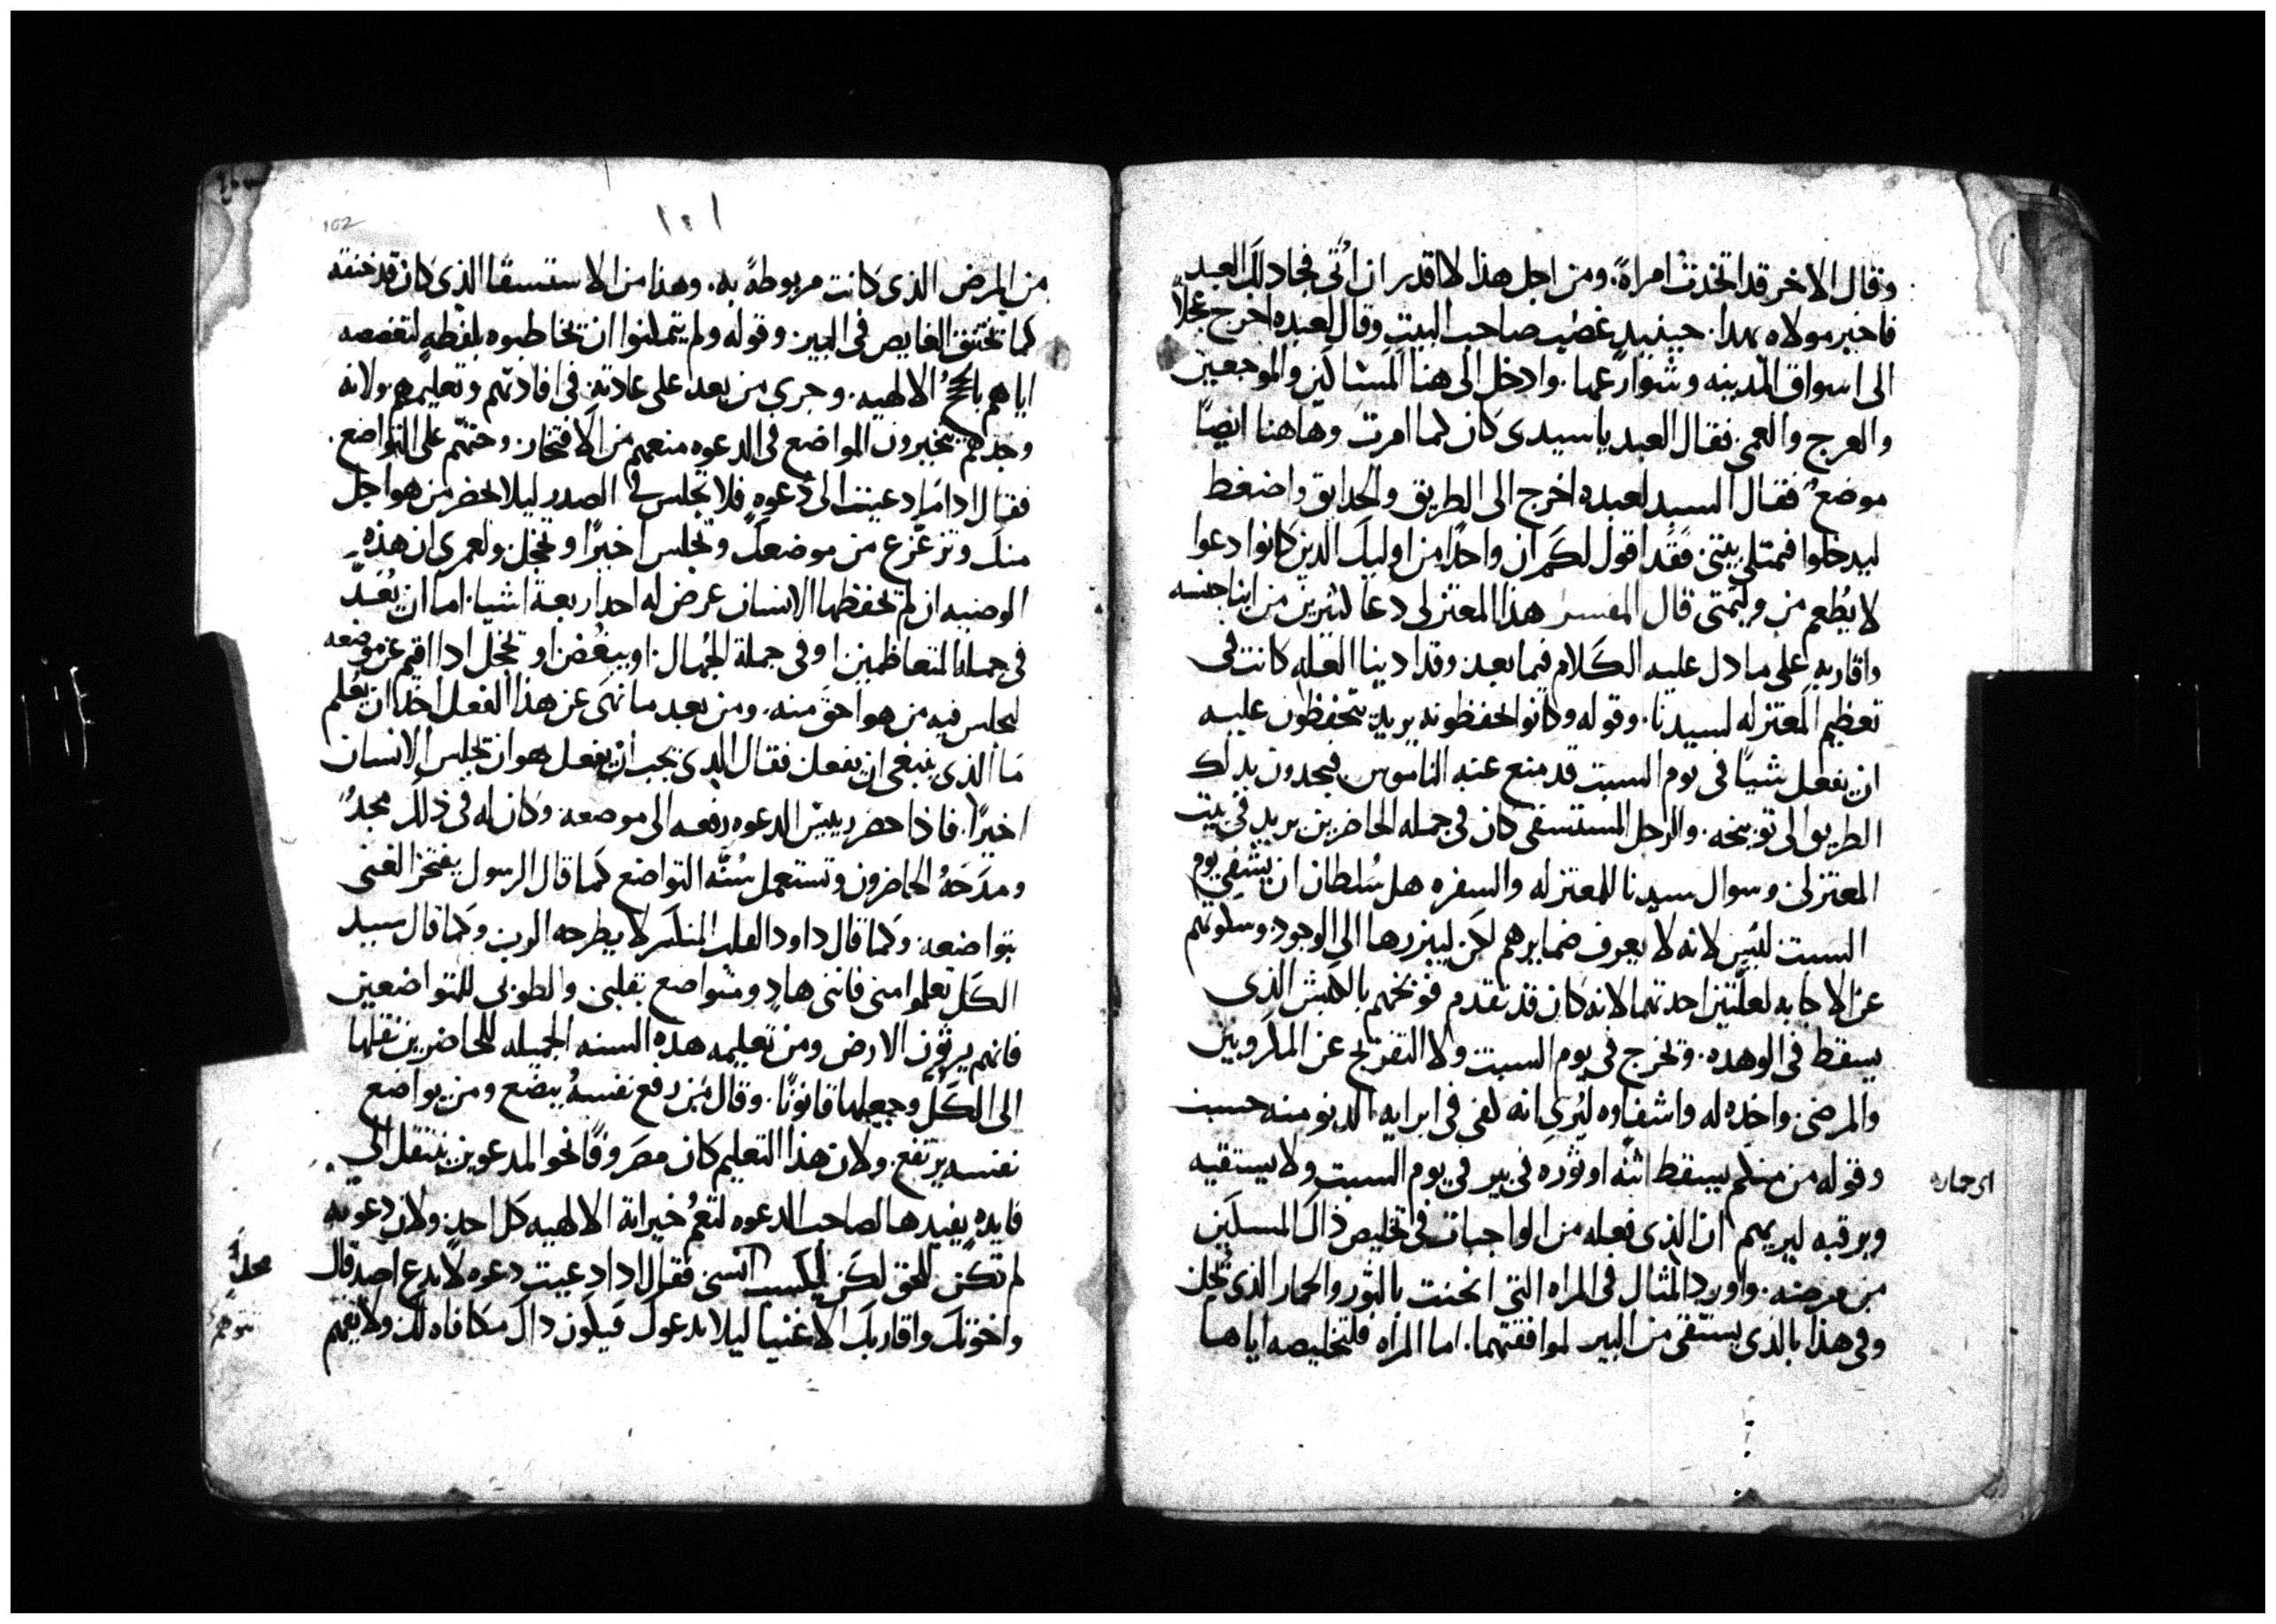 وقال الاخر قد اتخدت امراةً. ومن اجل هذا لا اقدر ان اُتى فجا ذلك العبد
فاخبر مولاه بهدا. حينيدٍ غضب صاحب البيت وقال لعبده اخرج عجلاً
الى اسواق المدينه وشوارعها. وادخل الى هنا المساكين والموجعين
والعرج والعمى. فقال العبد يا سيدى كان كما امرت وهاهنا ايضًا
موضعٌ فقال السيد لعبده اخرج الى الطريق والحدايق واضغط
ليدخلوا فيمتلى بيتى. فقد اقول لكم ان واحدًا من اوليك الدين كانوا دعوا
لا يُطعم من وليمتى قال المفسر هذا المعتزلى دعا كثيرين من ابنا جنسه
واقاربه على ما دل عليه الكلام فيما بعد. وقد ادينا العله كانت فى
تعظيم المعتزله لسيدنا. وقوله وكانوا يحفظونه يريد يتحفظون عليه
ان يفعل شيًا فى يوم السبت قد منع عنه الناموس فيجدون بدلك
الطريق الى توبيخه. والرجل المستسقى كان فى جمله الحاضرين يريد فى بيت
المعتزلى. وسوال سيدنا للمعتزله والسفره هل سُلطان ان يشفى يوم
السبت ليس لانه لا يعرف ضمايرهم لكن ليبزرها الى الوجود وسكوتهم
عن الاجابه لعلتين احدتهما لانه كان قد تقدم فوبخهم بالكبش الذى
يسقط فى الوهده. ويخرج فى يوم السبت ولا التفريج عن المكروبين
والمرضى. واخده له واشفاوه ليُرى انه لفى فى ابرايه الدنو منه حسب
وقوله من منكم يسقط ابنه او ثوره فى بير فى يوم السبت ولا يستقيه
اى حماره
ويرقبه ليريهم ان الذى فعله من الواجبات فى تخليص ذاك المسكين
من مرضه. واورد المثال فى المراه التى انحنت بالثور والحمار الذى يُحل
وفى هذا بالذى يستقى من البير لموافقتهما. اما المراه فلتخليصه اياها
١٠١
102
من المرض الذى كانت مربوطةً به. وهذا من الاستسقا الذى كان قد خنقه
كما يختنق الغايص فى البير. وقوله ولم يتمكنوا ان يخاطبوه بلفظهٍ لتغصصه
اياهم بالحجج الالهيه. وجرى من بعد على عادته فى افادتهم وتعليمهم ولانه
وجدهم يتخيرون المواضع فى الدعوه منعهم من الافتخار وحثهم على التواضع.
فقال ادا ما دعيت الى دُعوهٍ فلا تجلس فى الصدر ليلا يحضر من هو اجل
منك وتزعزع من موضعك وتجلس اخيرًا وتخجل. ولعمرى ان هذه
الوصيه ان لم يحفظها الانسان عرض له احد اربعة اشيا. اما ان يُعَدّ
فى جملة المتعاظمين او فى جملة الجُهال. او يبغض او يخجل ادا اقيم عن موضعه
ليجلس فيه من هو احق منه. ومن بعد ما نهى عن هذا الفعل اخد ان يعُلم
مَا الذى ينبغى ان يفعل فقال الذى يجب ان يفعل هو ان يجلس الانسان
اخيرًا. فاذا حضر رييس الدعوه رفعه الى موضعه. وكان له فى ذلك مجدٌ
ومدَحَهُ الحاضرون وتستعمل سُنّه التواضع كما قال الرسول يفتخر الغنى
بتواضعه. وكما قال داود القلب المنكسر لا يطرحه الرب وكما قال سيد
الكل تعلموا منى فاننى هادٍ ومتواضع بقلبى. والطوبى للمتواضعين
فانهم يرثون الارض ومن تعليمه هذه السنه الجميله للحاضرين نقلها
الى الكل وجعلها قانونًا. وقال من رفع نفسهُ يتضع ومن يواضع
نفسه يرتفع. ولان هذا التعليم كان مصروفًا نحو المدعوين ينتقل الى
فايدهٍ يفيدها لصاحب الدعوه لتعمُ خيراته الالهيه كل احدٍ. ولان دعوته
لم تكن للحق لكن انسى فقال ادا دعيت دعوه لا تدع اصدقاك
واخوتك واقاربك الاغنيا ليلا يدعوك فيكون داك مكافاه لك ولا يعمهم